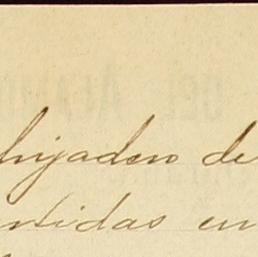 hijaden de
rtidas en